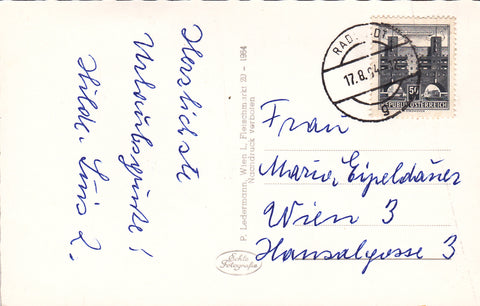 Herzlichste
Urlaubsgrüße!
Hilde, Luis 2.
P. Ledermann, Wien I., Fleischmarkt 20 – 1964
Nachdruck verboten
Echte
Fotografie
17.8.64
50
REPUBLIK ÖSTERREICH
Frau
Maria Eipeldauer
Wien 3
Hansalgasse 3